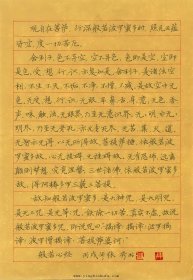 观自在菩萨,行深般若波罗蜜多时,照见五蕴
皆空,度一切苦厄。
舍利子,色不异空,空不异色,色即是空,空即
是色,受、想、行、识,亦复如是。舍利子,是诸法空
相,不生、不灭、不垢、不净、不增、不减。是故空中无
色,无受想行识,无眼耳鼻舌身意,无色声香
味触法,无眼界,乃至无意识界,无无明,亦无无
明尽,乃至无老死,亦无老死尽。无苦、集、灭、道,
无智亦无得,以无所得故。菩提萨埵,依般若波罗
蜜多故,心无挂碍,无挂碍故,无有恐怖,远
离颠倒梦想,究竟涅槃。三世诸佛,依般若波罗蜜多
故,得阿耨多罗三藐三菩提。
故知般若波罗蜜多,是大神咒,是大明咒,
是无上咒,是无等等咒,能除一切苦,真实不虚。故说
般若波罗蜜多咒,即说咒曰:揭谛揭谛,波罗揭
谛,波罗僧揭谛,菩提萨婆诃。
般若心经 丙戌 张